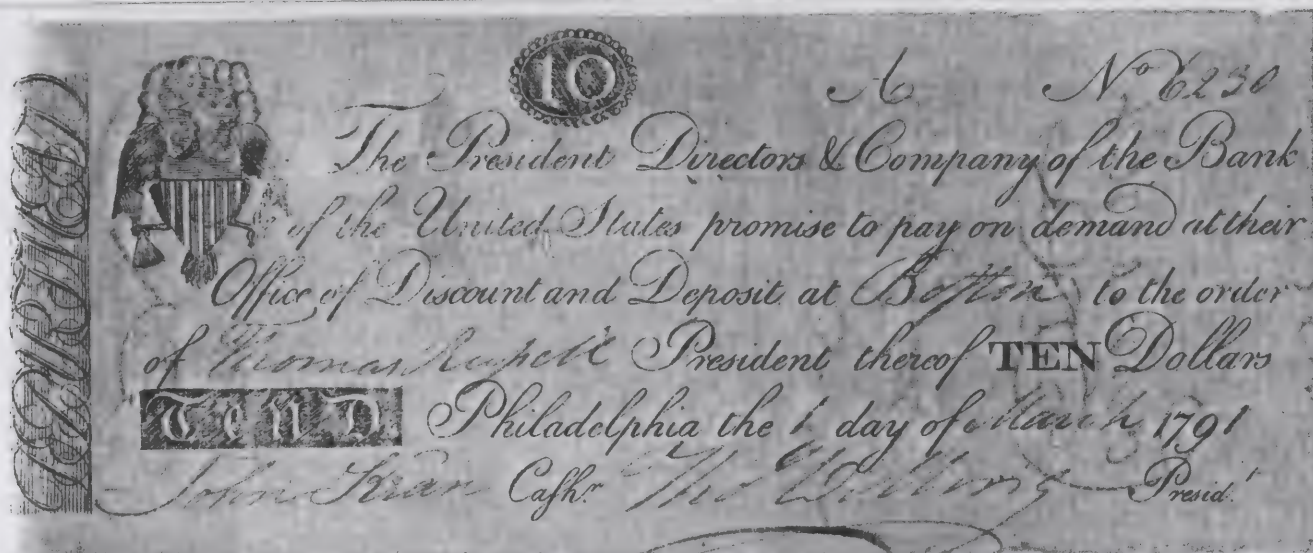 10
A No 6230
The President Directors & Company of the Bank
of the United States promise to pay on demand at their
Office of Discount and Deposit at Boſton to the order
of Thomas Ruſsell President thereof TEN Dollars
Ten D Philadelphia the 1 day of March 1791
John Kean Caſhr. Tho Willing Presidt.